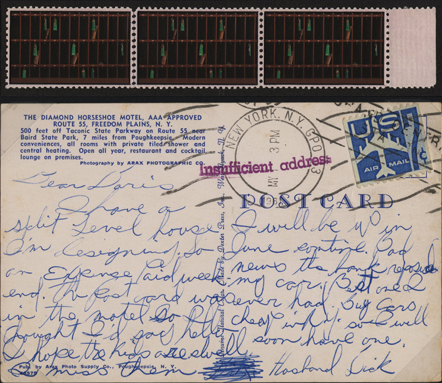 THE DIAMOND HORSESHOE MOTEL, AAA APPROVED
ROUTE 55, FREEDOM PLAINS, N. Y.
500 feet off Taconic State Parkway on Route 55 near
Baird State Park, 7 miles from Poughkeepsie. Modern
conveniences, all rooms with private tiled shower and
central heating. Open all year, restaurant and cocktail
lounge on premises.
Photography by ARAX PHOTOGRAPHIC CO.
NEW YORK, N.Y. GPO
3 PM
Insufficient address
US
AIR MAIL
POST CARD
Dear Doris
I have a
split level house
I'm designing. So
an Expense paid week
end. The Post card was
in the motel so I
thought I'd say hello
I hope the kids are well
I miss them
I will be W in
June
news the bank
my car. Best one I
ever had. Big Cars
cheap
soon have one.
Husband Dick
Pub. by Arax Photo Supply Co., Poughkeepsie, N. Y.